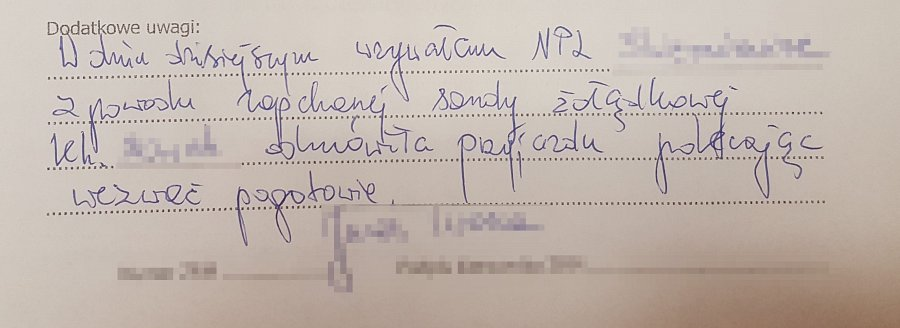 Dodatkowe uwagi:
W dniu dzisiejszym wzywałam NPL
z powodu zapchanej sondy żołądkowej
lek. odmówiła przyjazdu polecając
wezwać pogotowie.